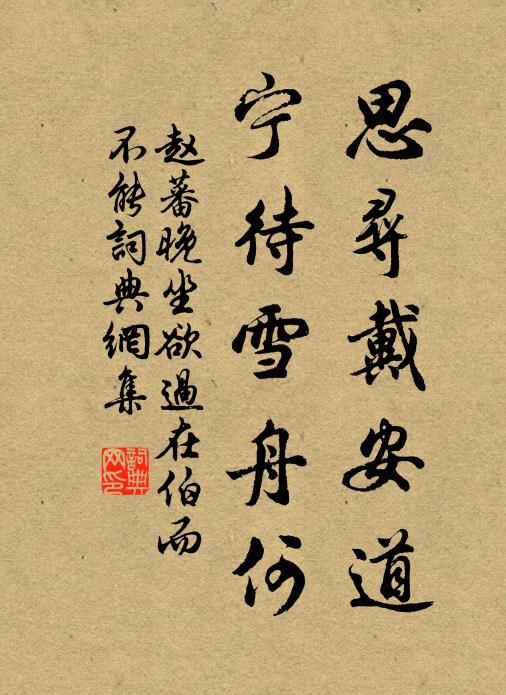 思尋戴安道
宁待雪舟何
赵蕃晚坐欲過在伯而
不能詞典網集
詞典網印